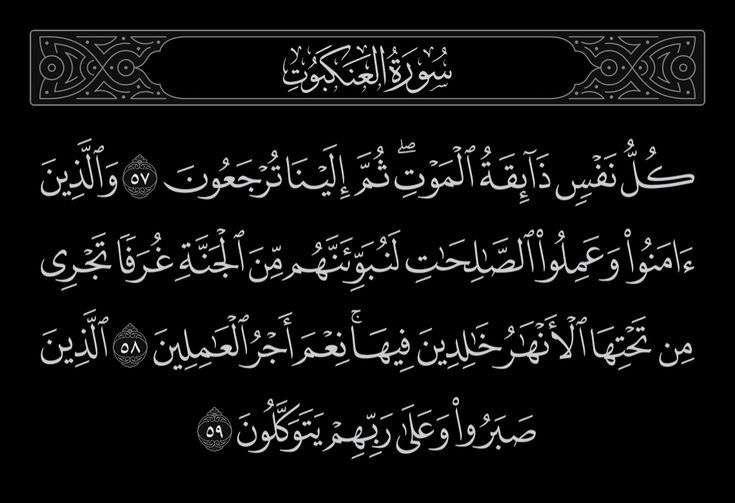 سُورَةُ العَنكَبُوتِ
كُلُّ نَفْسٍ ذَآئِقَةُ ٱلْمَوْتِ ۖ ثُمَّ إِلَيْنَا تُرْجَعُونَ ٥٧ وَٱلَّذِينَ
ءَامَنُوا۟ وَعَمِلُوا۟ ٱلصَّٰلِحَٰتِ لَنُبَوِّئَنَّهُم مِّنَ ٱلْجَنَّةِ غُرَفًا تَجْرِى
مِن تَحْتِهَا ٱلْأَنْهَٰرُ خَٰلِدِينَ فِيهَا ۚ نِعْمَ أَجْرُ ٱلْعَٰمِلِينَ ٥٨ ٱلَّذِينَ
صَبَرُوا۟ وَعَلَىٰ رَبِّهِمْ يَتَوَكَّلُونَ ٥٩